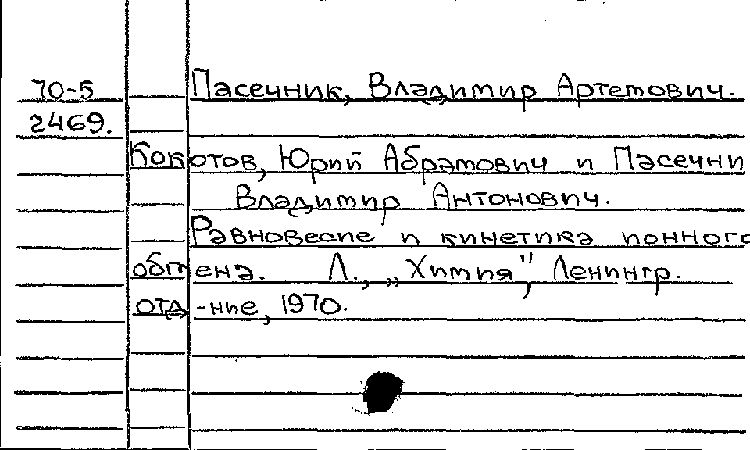 70-5 Пасечник, Владимир Артемович.
2469.
Кокотов, Юрий Абрамович и Пасечни
Владимир Антонович.
Равновесие и кинетика ионного
обмена. Л., „Химия", Ленингр.
отд-ние, 1970.